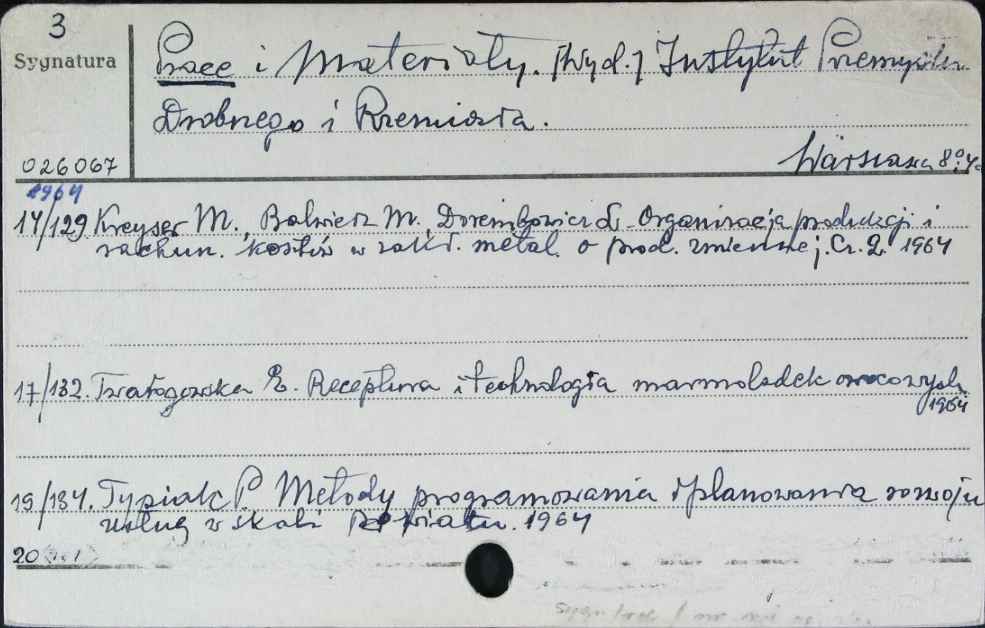 3
Sygnatura
Prace i Materiały. [Wyd.] Instytut Przemysłu
Drobnego i Rzemiosła.
026067
Warszawa 8°
1964
14/129 Kreyser M., Balwierz M., Dorembowicz L. Organizacja produkcji i
rachun. kosztów w zakł. metal. o prod. zmiennej. Cz. 2. 1964
17/132. E. Receptura i technologia marmoladek owocowych
1964
19/134. Typiak P. Metody programowania i planowania rozwoju
usług w skali powiatu. 1964
20